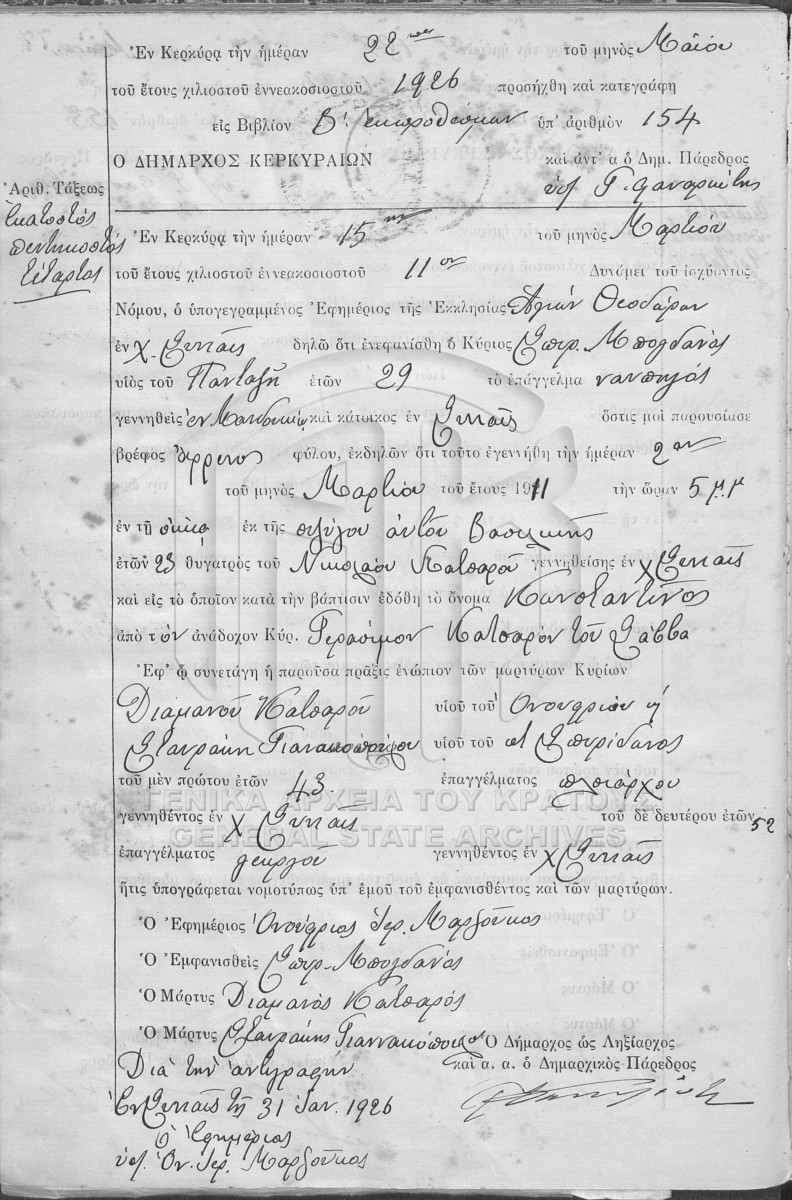 Ἐν Κερκύρᾳ τὴν ἡμέραν 22αν τοῦ μηνὸς Μαΐου
τοῦ ἔτους χιλιοστοῦ ἐννεακοσιοστοῦ 1926 προσήχθη καὶ κατεγράφη
εἰς Βιβλίον Β' ἐκπροθέσμων ὑπ' ἀριθμὸν 154
Ο ΔΗΜΑΡΧΟΣ ΚΕΡΚΥΡΑΙΩΝ καὶ ἀντ' α ὁ Δημ. Πάρεδρος
Ἀριθ. Τάξεως
Ἑκατοστὸς
πεντηκοστὸς
τέταρτος
Ἐν Κερκύρᾳ τὴν ἡμέραν 15ην τοῦ μηνὸς Μαρτίου
τοῦ ἔτους χιλιοστοῦ ἐννεακοσιοστοῦ 11ου Δυνάμει τοῦ ἰσχύοντος
Νόμου, ὁ ὑπογεγραμμένος Ἐφημέριος τῆς Ἐκκλησίας Ἁγίων Θεοδώρων
ἐν χ. Συναῖς δηλῶ ὅτι ἐνεφανίσθη ὁ Κύριος Σπυρ. Μπογδάνος
υἱὸς τοῦ Πανταζῆ ἐτῶν 29 τὸ ἐπάγγελμα ναυπηγός
γεννηθεὶς ἐν Μανδουκίῳ καὶ κάτοικος ἐν Συναῖς ὅστις μοὶ παρουσίασε
βρέφος ἄρρενος φύλου, ἐκδηλῶν ὅτι τοῦτο ἐγεννήθη τὴν ἡμέραν 2αν
τοῦ μηνὸς Μαρτίου τοῦ ἔτους 1911 τὴν ὥραν 5 μ.μ
ἐν τῇ οἰκίᾳ ἐκ τῆς συζύγου αὐτοῦ Βασιλικῆς
ἐτῶν 23 θυγατρὸς τοῦ Νικολάου Κατσαροῦ γεννηθείσης ἐν χ Συναῖς
καὶ εἰς τὸ ὁποῖον κατὰ τὴν βάπτισιν ἐδόθη τὸ ὄνομα Κωνσταντῖνος
ἀπὸ τὸν ἀνάδοχον Κύρ. Γεράσιμον Κατσαρὸν τοῦ Σάββα
Ἐφ' ᾧ συνετάγη ἡ παροῦσα πρᾶξις ἐνώπιον τῶν μαρτύρων Κυρίων
Διαμανοῦ Κατσαροῦ υἱοῦ τοῦ Ὀνουφρίου
Σταυράκη Γιανακοπούλου υἱοῦ τοῦ Σπυρίδωνος
τοῦ μὲν πρώτου ἐτῶν 43 ἐπαγγέλματος πλοιάρχου
γεννηθέντος ἐν χ Συναῖς τοῦ δὲ δευτέρου ἐτῶν 52
ἐπαγγέλματος γεωργοῦ γεννηθέντος ἐν χ Συναῖς
ἥτις ὑπογράφεται νομοτύπως ὑπ' ἐμοῦ τοῦ ἐμφανισθέντος καὶ τῶν μαρτύρων.
Ὁ Ἐφημέριος Ὀνούφριος Ἱερ. Μαρζοῦκος
Ὁ Ἐμφανισθεὶς Σπυρ. Μπογδάνος
Ὁ Μάρτυς Διαμανὸς Κατσαρός
Ὁ Μάρτυς Σταυράκης Γιαννακόπουλος
Ὁ Δήμαρχος ὡς Ληξίαρχος
καὶ α. α. ὁ Δημαρχικὸς Πάρεδρος
Διὰ τὴν ἀντιγραφήν
Ἐν Συναῖς τῇ 31 Ἰαν. 1926
ὁ Ἐφημέριος
ὑπ. Ὀν. Ἱερ. Μαρζοῦκος
ΓΕΝΙΚΑ ΑΡΧΕΙΑ ΤΟΥ ΚΡΑΤΟΥΣ
GENERAL STATE ARCHIVES